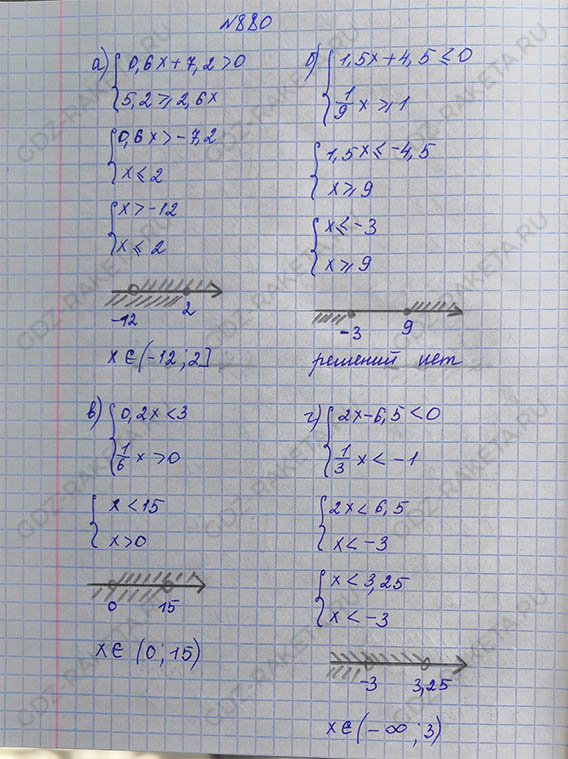 №880
а) { 0,6x + 7,2 > 0
5,2 ≥ 2,6x
{ 0,6x > -7,2
x ≤ 2
{ x > -12
x ≤ 2
-12 2
x ∈ (-12; 2]
б) { 1,5x + 4,5 ≤ 0
1/9 x ≥ 1
{ 1,5x ≤ -4,5
x ≥ 9
{ x ≤ -3
x ≥ 9
-3 9
решений нет
в) { 0,2x < 3
1/6 x > 0
{ x < 15
x > 0
0 15
x ∈ (0; 15)
г) { 2x - 6,5 < 0
1/3 x < -1
{ 2x < 6,5
x < -3
{ x < 3,25
x < -3
-3 3,25
x ∈ (-∞; 3)
GDZ-RAKETA.RU